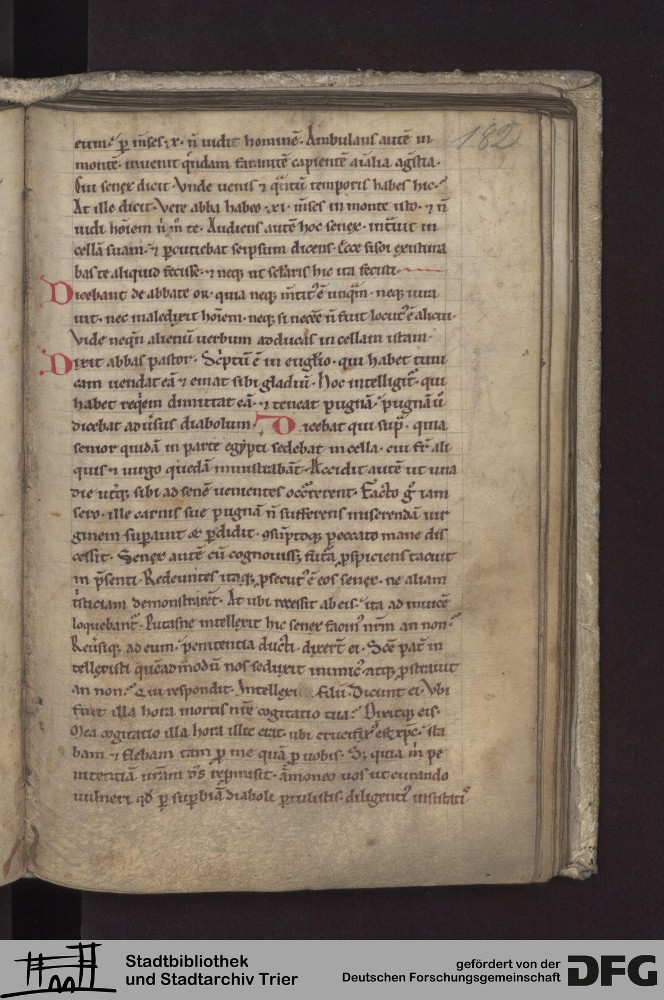 182
eum · ꝑ m̄ses · x · n̄ uidit hominē · Ambulans autē in
montē · inuenit quendam captantē capientē aīalia ag̃stia ·
Cui senex dicit · Vnde uenis ⁊ quātū temporis habes hic ·
At ille dicit · Vere abba habeo · xi · m̄ses in monte isto · ⁊ n̄
uidi hoīem n̄ m̊ te · Audiens autē hoc senex · int̃uit in
cellā suam · ⁊ ꝑcutiebat seipsum dicens · Ecce existima
bas te aliquid fecisse · ⁊ neq; ut sclaris hic ita fecisti ·
Dicebant de abbate or · quia neq; m̄tit' ē unq̃m · neq; iura
uit · nec maledixit hoīem · neq; si necēe n̄ fuit locut' ē alicui ·
Vide neq̃n alienū uerbum adducas in cellam istam ·
Dixit abbas pastor · Sc̄ptū ē in euḡlio · qui habet tuni
cam uendat eā ⁊ emat sibi gladiū · Hoc intelligit̃ · qui
habet reqēm dimittat eā · ⁊ teneat pugnā · pugnā ū
dicebat adūsus diabolum Dicebat qui sup̃ · quia
senior quidā in parte egypti sedebat in cella · cui fr̄ ali
quis ⁊ uirgo quedā ministrabāt · Accidit autē ut una
die utq; sibi ad senē uenientes occrrerent · Facto g̊ iam
sero · ille carnis sue pugnā n̄ sufferens miserandā uir
ginem suꝑauit et ꝑdidit · ꝯsūptoq; peccato mane dis
cessit · Senex autē cū cognouiss; futā ꝑspiciens tacuit
in p̄senti · Redeuntes itaq; ꝓsecut' ē eos senex · ne aliam
tisticiam demonstraret · At ubi recessit ab eis · ita ad inuicē
loquebant̃ · Putasne intellexit hic senex facin' nr̄m an non ·
Reūsiq; ad eum · penitentia ducti · dixert ei · Sce pat̃ in
tellexisti quēadmodū nos seduxit inimic' atq; ꝓstrauit
an non · Qui respondit · Intellexi filii · Dicunt ei · Vbi
fuit illa hora mortis nr̄e cogitatio tua · Dixitq; eis ·
Mea cogitatio illa hora illic erat · ubi crucifix' est xp̄c · sta
bam ⁊ flebam tam ꝓ me quā ꝓ uobis · S; quia m̊ pe
nitentiā ur̄am dš repmisit · ām̄oneo uos ut curando
uulneri qd̄ ꝑ suꝑbiā diaboli ꝑtulistis · diligenti' insistatis ·
Stadtbibliothek
und Stadtarchiv Trier
gefördert von der
Deutschen Forschungsgemeinschaft
DFG